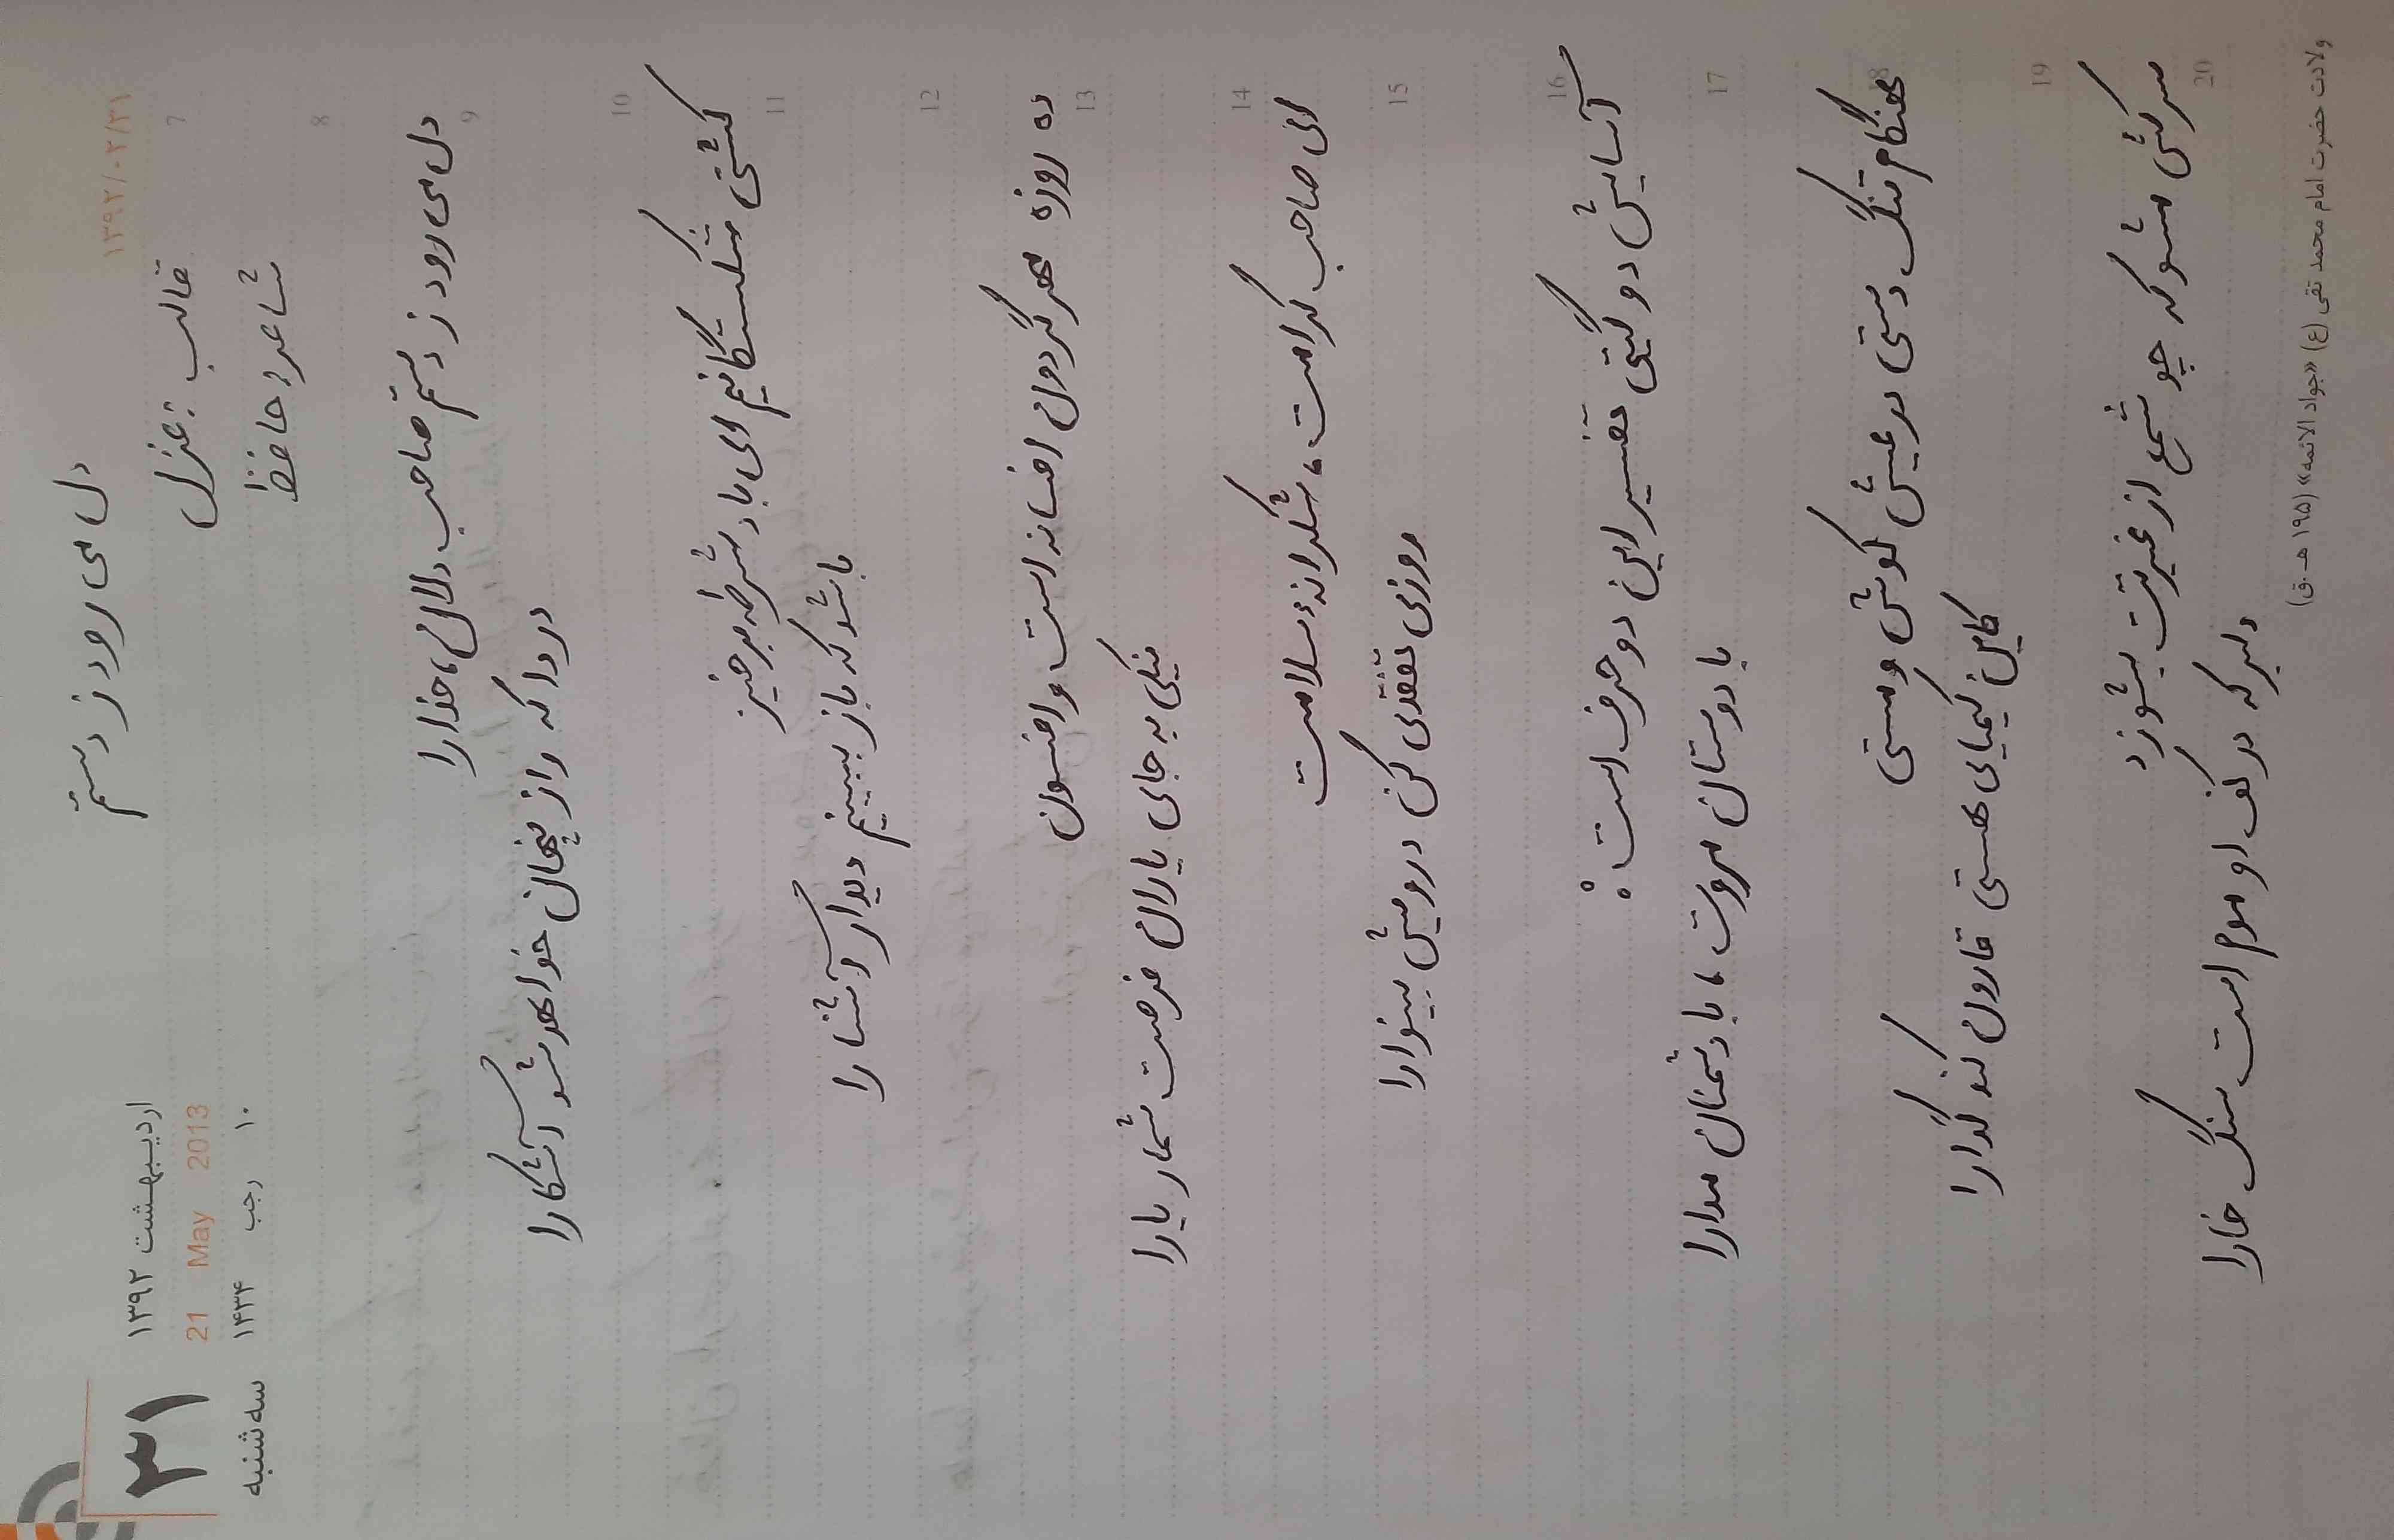 ۳۱
سه شنبه
اردیبهشت ۱۳۹۲
21 May 2013
۱۰ رجب ۱۴۳۴
۱۳۹۲/۰۲/۳۱
دل می رود ز دستم
قالب: غزل
شاعر: حافظ
7
8
دل می رود ز دستم صاحب دلان، خدا را
9
دردا که راز پنهان خواهد شد آشکارا
10
کشتی شکستگانیم ای باد شرطه برخیز
11
باشد که باز ببینیم دیدار آشنا را
12
ده روزه مهر گردون افسانه است و افسون
13
نیکی به جای یاران فرصت شمار یارا
14
ای صاحب کرامت، شکرانهٔ سلامت
15
روزی تفقدی کن درویش بینوا را
16
آسایش دو گیتی تفسیر این دو حرف است:
17
با دوستان مروت، با دشمنان مدارا
18
هنگام تنگ دستی در عیش کوش و مستی
کاین کیمیای هستی قارون کند گدا را
19
سرکش مشو که چو شمع از غیرتت بسوزد
20
دلبر که در کف او موم است سنگ خارا
ولادت حضرت امام محمد تقی (ع) «جواد الائمه» (۱۹۵ هـ.ق)